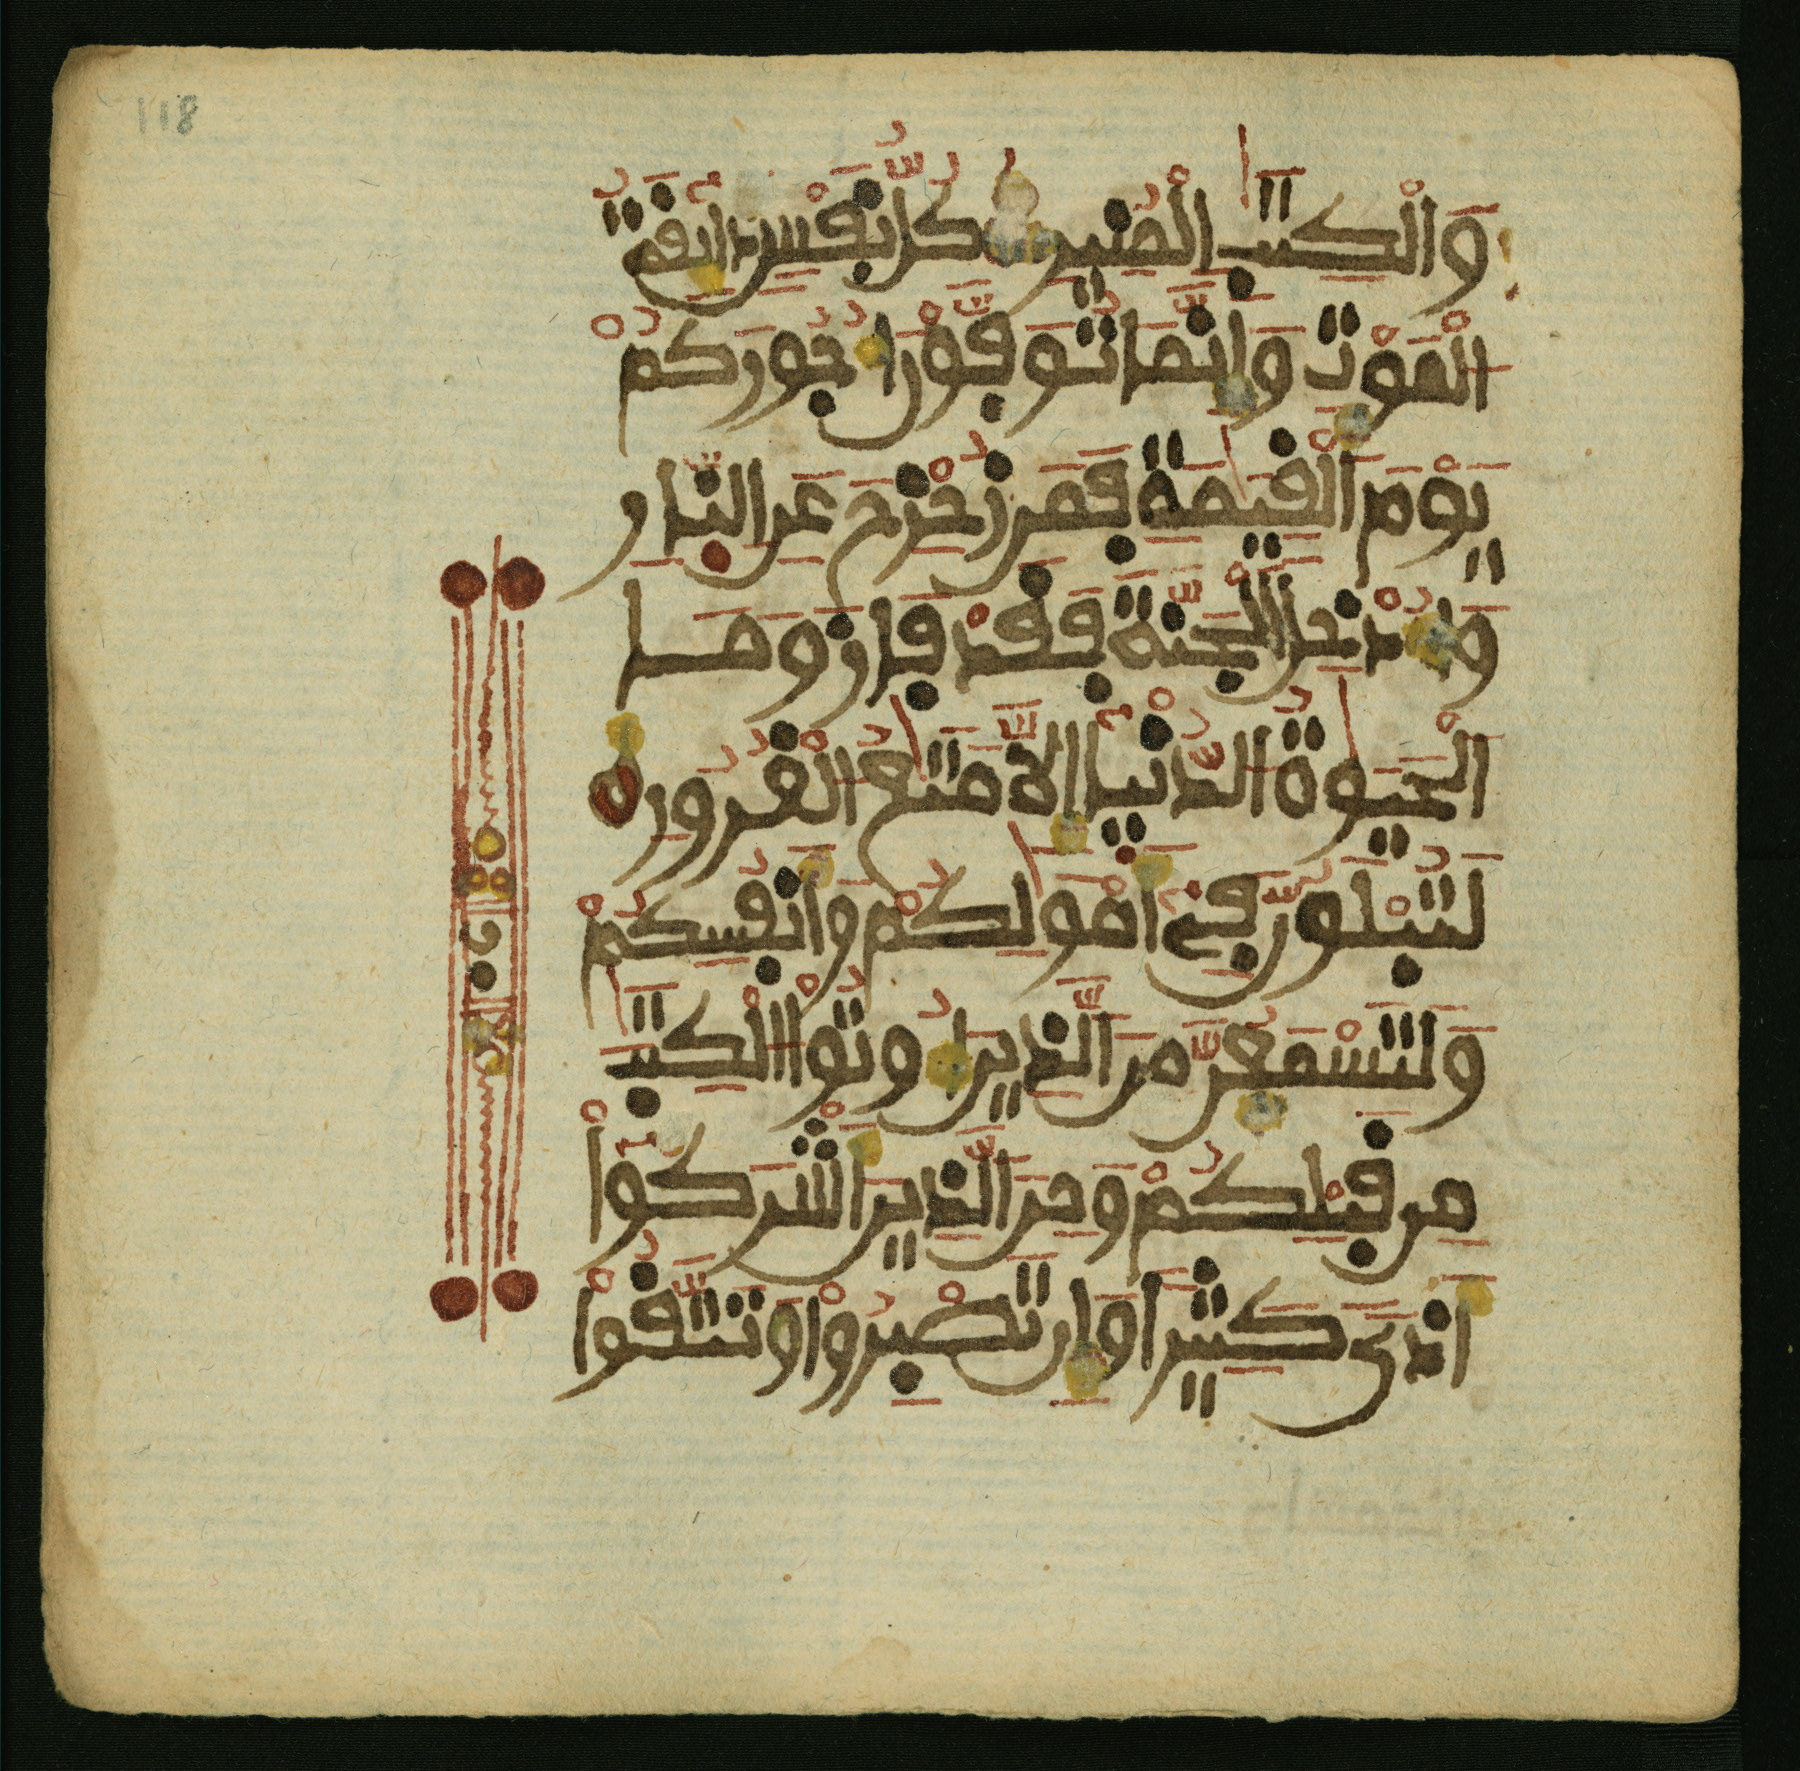 118
وَالْكِتَٰبِ الْمُنِيرِ كُلُّ نَفْسٍ ذَآئِقَةُ
الْمَوْتِ وَإِنَّمَا تُوَفَّوْنَ أُجُورَكُمْ
يَوْمَ الْقِيَٰمَةِ فَمَن زُحْزِحَ عَنِ النَّارِ
وَأُدْخِلَ الْجَنَّةَ فَقَدْ فَازَ وَمَا
الْحَيَوٰةُ الدُّنْيَآ إِلَّا مَتَٰعُ الْغُرُورِ
لَتُبْلَوُنَّ فِىٓ أَمْوَٰلِكُمْ وَأَنفُسِكُمْ
وَلَتَسْمَعُنَّ مِنَ الَّذِينَ أُوتُوا الْكِتَٰبَ
مِن قَبْلِكُمْ وَمِنَ الَّذِينَ أَشْرَكُوٓا
أَذًى كَثِيرًا وَإِن تَصْبِرُوا وَتَتَّقُوا